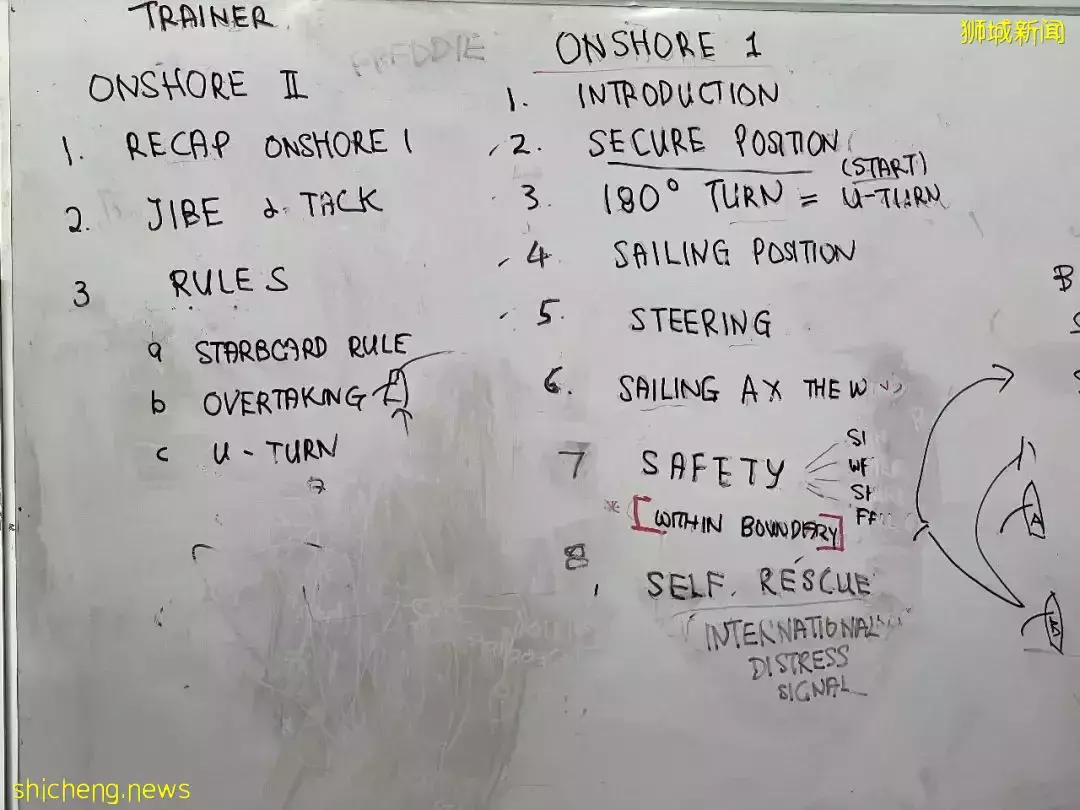 狮城新闻
TRAINER
FREDDIE
ONSHORE II
1. RECAP ONSHORE 1
2. JIBE & TACK
3 RULES
a STARBOARD RULE
b OVERTAKING
c U-TURN
ONSHORE 1
1. INTRODUCTION
2. SECURE POSITION
(START)
3. 180° TURN = U-TURN
4 SAILING POSITION
5. STEERING
6. SAILING AX THE
7 SAFETY
* [WITHIN BOUNDARY]
8 SELF. RESCUE
INTERNATIONAL
DISTRESS
SIGNAL
B
A
B
shicheng.news